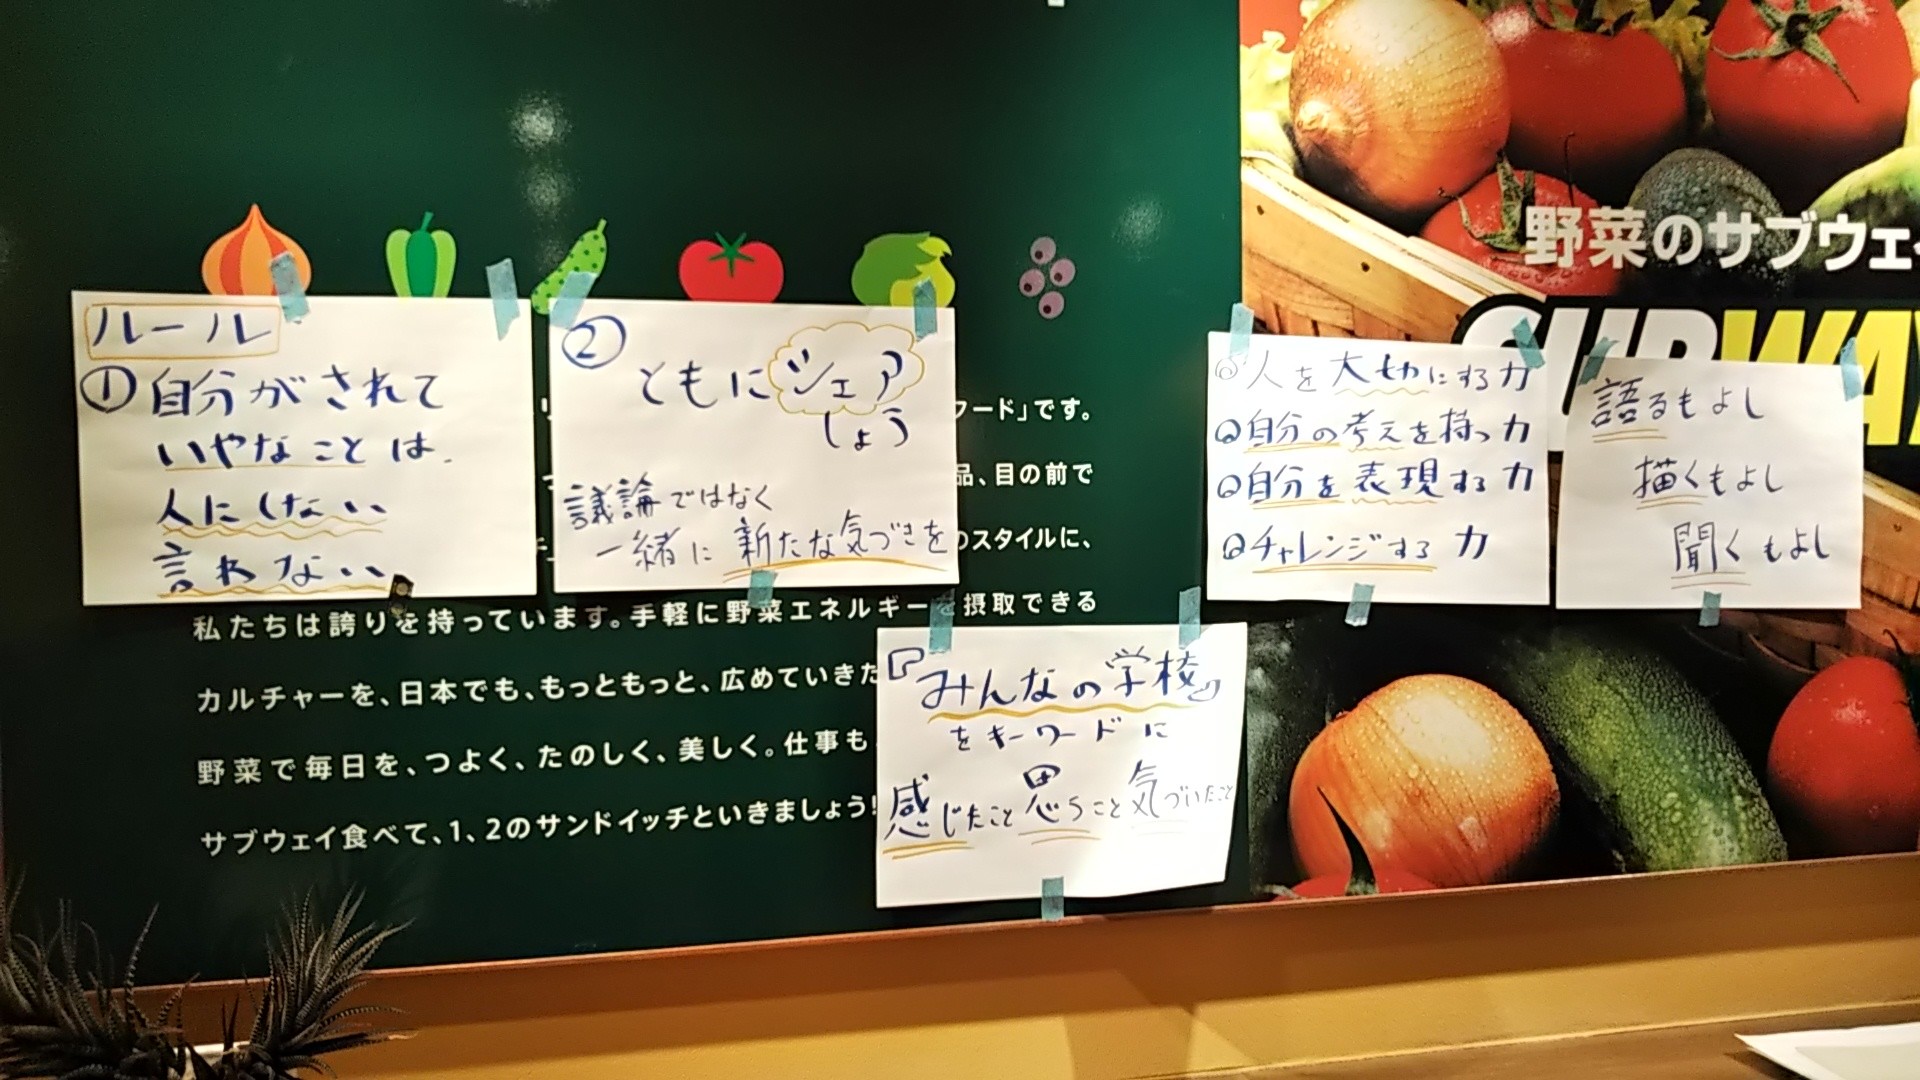 野菜のサブウェイ
SUBWAY
ルール
① 自分がされて
いやなことは
人にしない
言わない
②
ともにシェア
しょう
議論ではなく
一緒に新たな気づきを
人を大切にする力
自分の考えを持つ力
自分を表現する力
チャレンジする力
語るもよし
描くもよし
聞くもよし
『みんなの学校』
をキーワードに
感じたこと思うこと気づいたこと
フード」です。
品、目の前で
のスタイルに、
私たちは誇りを持っています。手軽に野菜エネルギー 摂取できる
カルチャーを、日本でも、もっともっと、広めていきた
野菜で毎日を、つよく、たのしく、美しく。仕事も
サブウェイ食べて、1、2のサンドイッチといきましょう!